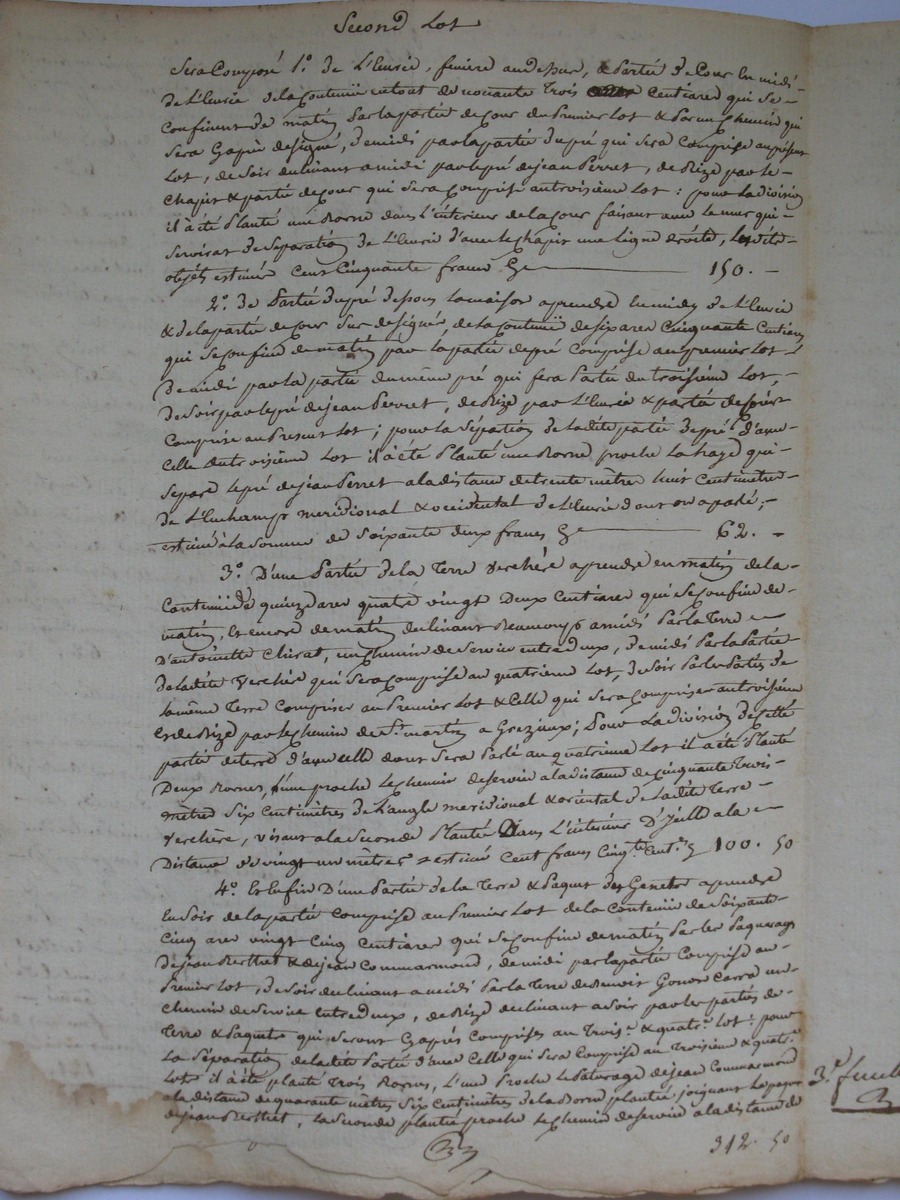 Second Lot
Sera Composé 1.° de L'Eurie, feniere au dessus, & Partie de Cour en midi
de L'Eurie de la Contenue en tout de nonante Trois Centiares qui se
Confinent de matin Par la partie de cour du Premier Lot & Par un Chemin qui
Sera Cy après désigné, de midi par la partie du pré qui sera Comprise au présent
Lot, de Soir declinant a midi par le pré de jean Perret, de Bize par le
Chapit & partie de Cour qui Sera Comprise au troisième Lot : pour la division
il à été Planté une Borne dans L'intérieur de la Cour faisant avec le mur qui
Servira de Separation de L'Eurie d'avec le Chapit une Ligne droite, Lesdits
objets estimés Cent Cinquante francs Cy 150. -
2.° De Partie du pré dessous la maison a prendre en midy de L'Eurie
& de la partie de Cour Sus designés, de la Contenue de six ares Cinquante Centiares
qui Se Confine de matin par la partie de pré Comprise au premier Lot
De midi par la partie du même pré qui fera Partie du troisième Lot,
de Soir par le pré de jean Perret, de Bize par L'Eurie & partie de Cour
Comprise au Present Lot ; pour la Séparation de Ladite partie de pré d'avec
Celle du troisième Lot il à été Planté une Borne proche La haye qui
Separe le pré de jean Perret a la distance de trente mètres huit Centimètres
de L'Enchamp meridional & occidental de L'Eurie dont on a parlé ;
estimé à la Somme de Soixante deux francs Cy 62. -
3.° D'une Partie de la Terre verchère a prendre en matin de la
Contenue de quinze ares quatre vingt Deux Centiares qui Se Confine de
matin, Et encore de matin declinant Beaucoup a midi Par la Terre
D'antoinette Chirat, un Chemin de Service entre deux, de midi Par la Partie
de Ladite Verchère qui Sera Comprise au quatrième Lot, de Soir Par les Parties de
la même Terre Comprises au Premier Lot & Celle qui Sera Comprise au troisième
Et de Bize par le Chemin de St. martin a Grezieux ; Pour La division de Cette
partie de terre d'avec Celle dont Sera Parlé au quatrième Lot il a été Planté
Deux Bornes, L'une proche le Chemin de Service a la distance de Cinquante Trois
mètres Six Centimètres de L'angle meridional & oriental de Ladite Terre
Verchère, visant a la Seconde Plantée Dans L'interieur D'Icelle a la
Distance de vingt un mètres estimé Cent francs Cinqte. Cent.s Cy 100. 50
4.° Et Enfin D'une Partie de la Terre & Paquet des Genets a prendre
En Soir de la partie Comprise au Premier Lot de la Contenue de Soixante
Cinq ares vingt Cinq Centiares qui Se Confine de matin Par les Paquerages
de jean Berthet & de jean Commarmond, de midi par la partie Comprise au
Premier Lot, de Soir declinant a midi Par la Terre de Benoit Gonon Carra un
Chemin de Service entre deux, de Bize declinant a Soir par les parties de
Terre & Paquets qui Seront Cy après Comprises au Trois.e & quatr.e Lot : pour
La Séparation de ladite Partie d'avec Celle qui Sera Comprise au Troisième & quatr.e
Lot il à été planté Trois Bornes, L'une Proche Le Paturage de jean Commarmond
a la distance de quarante mètres Six Centimètres de la Borne plantée joignant Le paquer
de jean Berthet, la Seconde plantée proche le Chemin de Service a la distance de
312. 50
3.e